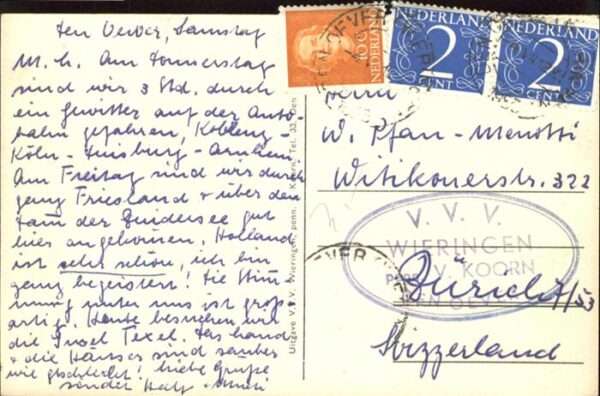 Den Oever, Samstag
M. h. Am Donnerstag
sind wir 3 Std. durch
ein Gewitter auf der Auto-
bahn gefahren, Koblenz-
Köln - Duisburg - Arnhem.
Am Freitag sind wir durch
ganz Friesland + über den
Damm der Zuidersee gut
hier angekommen. Holland
ist sehr schön, ich bin
ganz begeistert! Die Stim-
mung unter uns ist groß-
artig. Heute besuchen wir
die Insel Texel. Das Land
+ die Häuser sind sauber
wie geschleckt! Liebe Grüße
sendet
Uitgave V. V. V. Wieringen, penn. K. Koorn, Tel. 33, Den
NEDERLAND
10 C
NEDERLAND
2
CENT
NEDERLAND
2
CENT
DEN OEVER
Herrn
W. Pfan-Menotti
Witikonerstr. 322
V. V. V.
WIERINGEN
V. KOORN
DEN OEVER
Zürich 7/53
Svizzerland